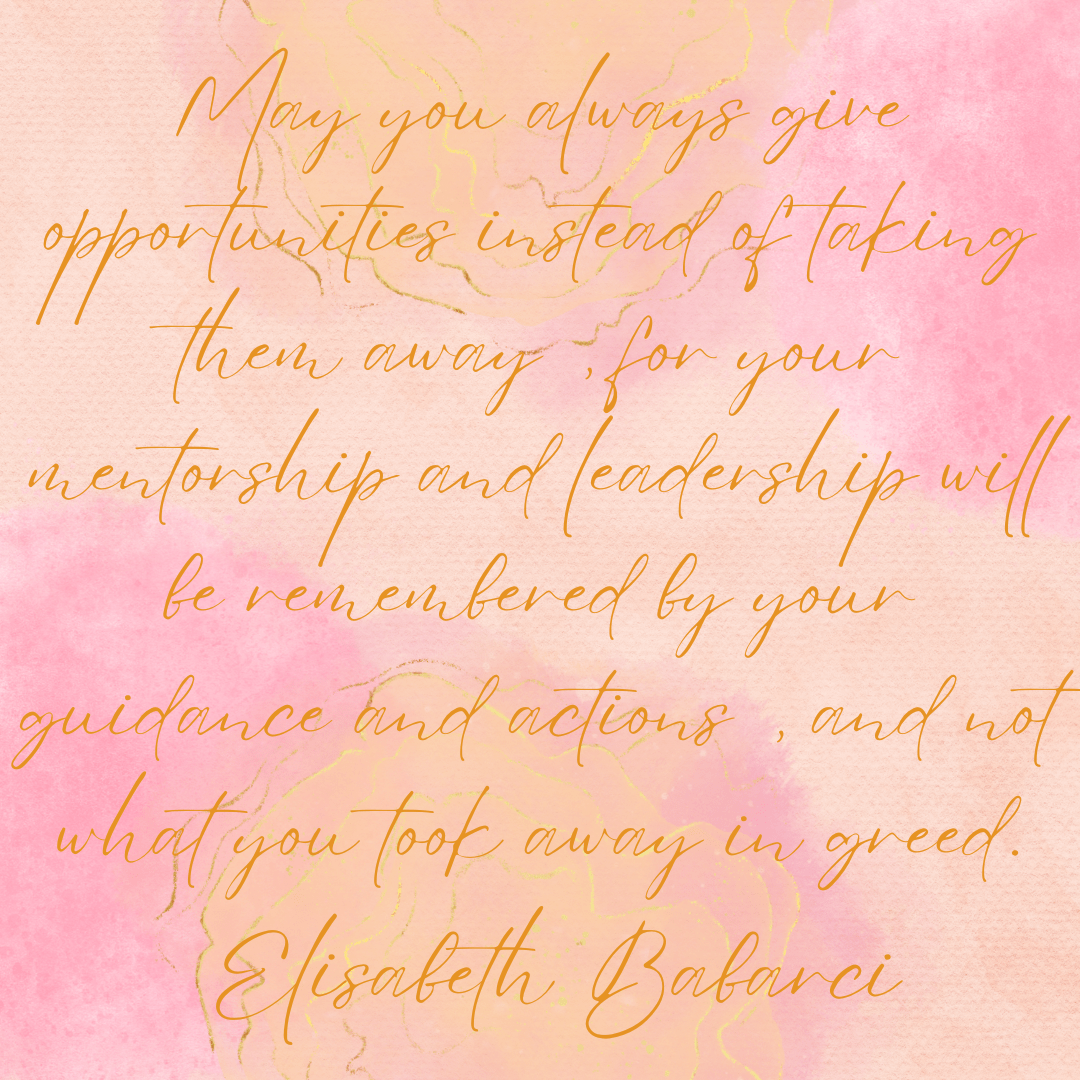 May you always give
opportunities instead of taking
them away , for your
mentorship and leadership will
be remembered by your
guidance and actions , and not
what you took away in greed.
Elisabeth Babarci